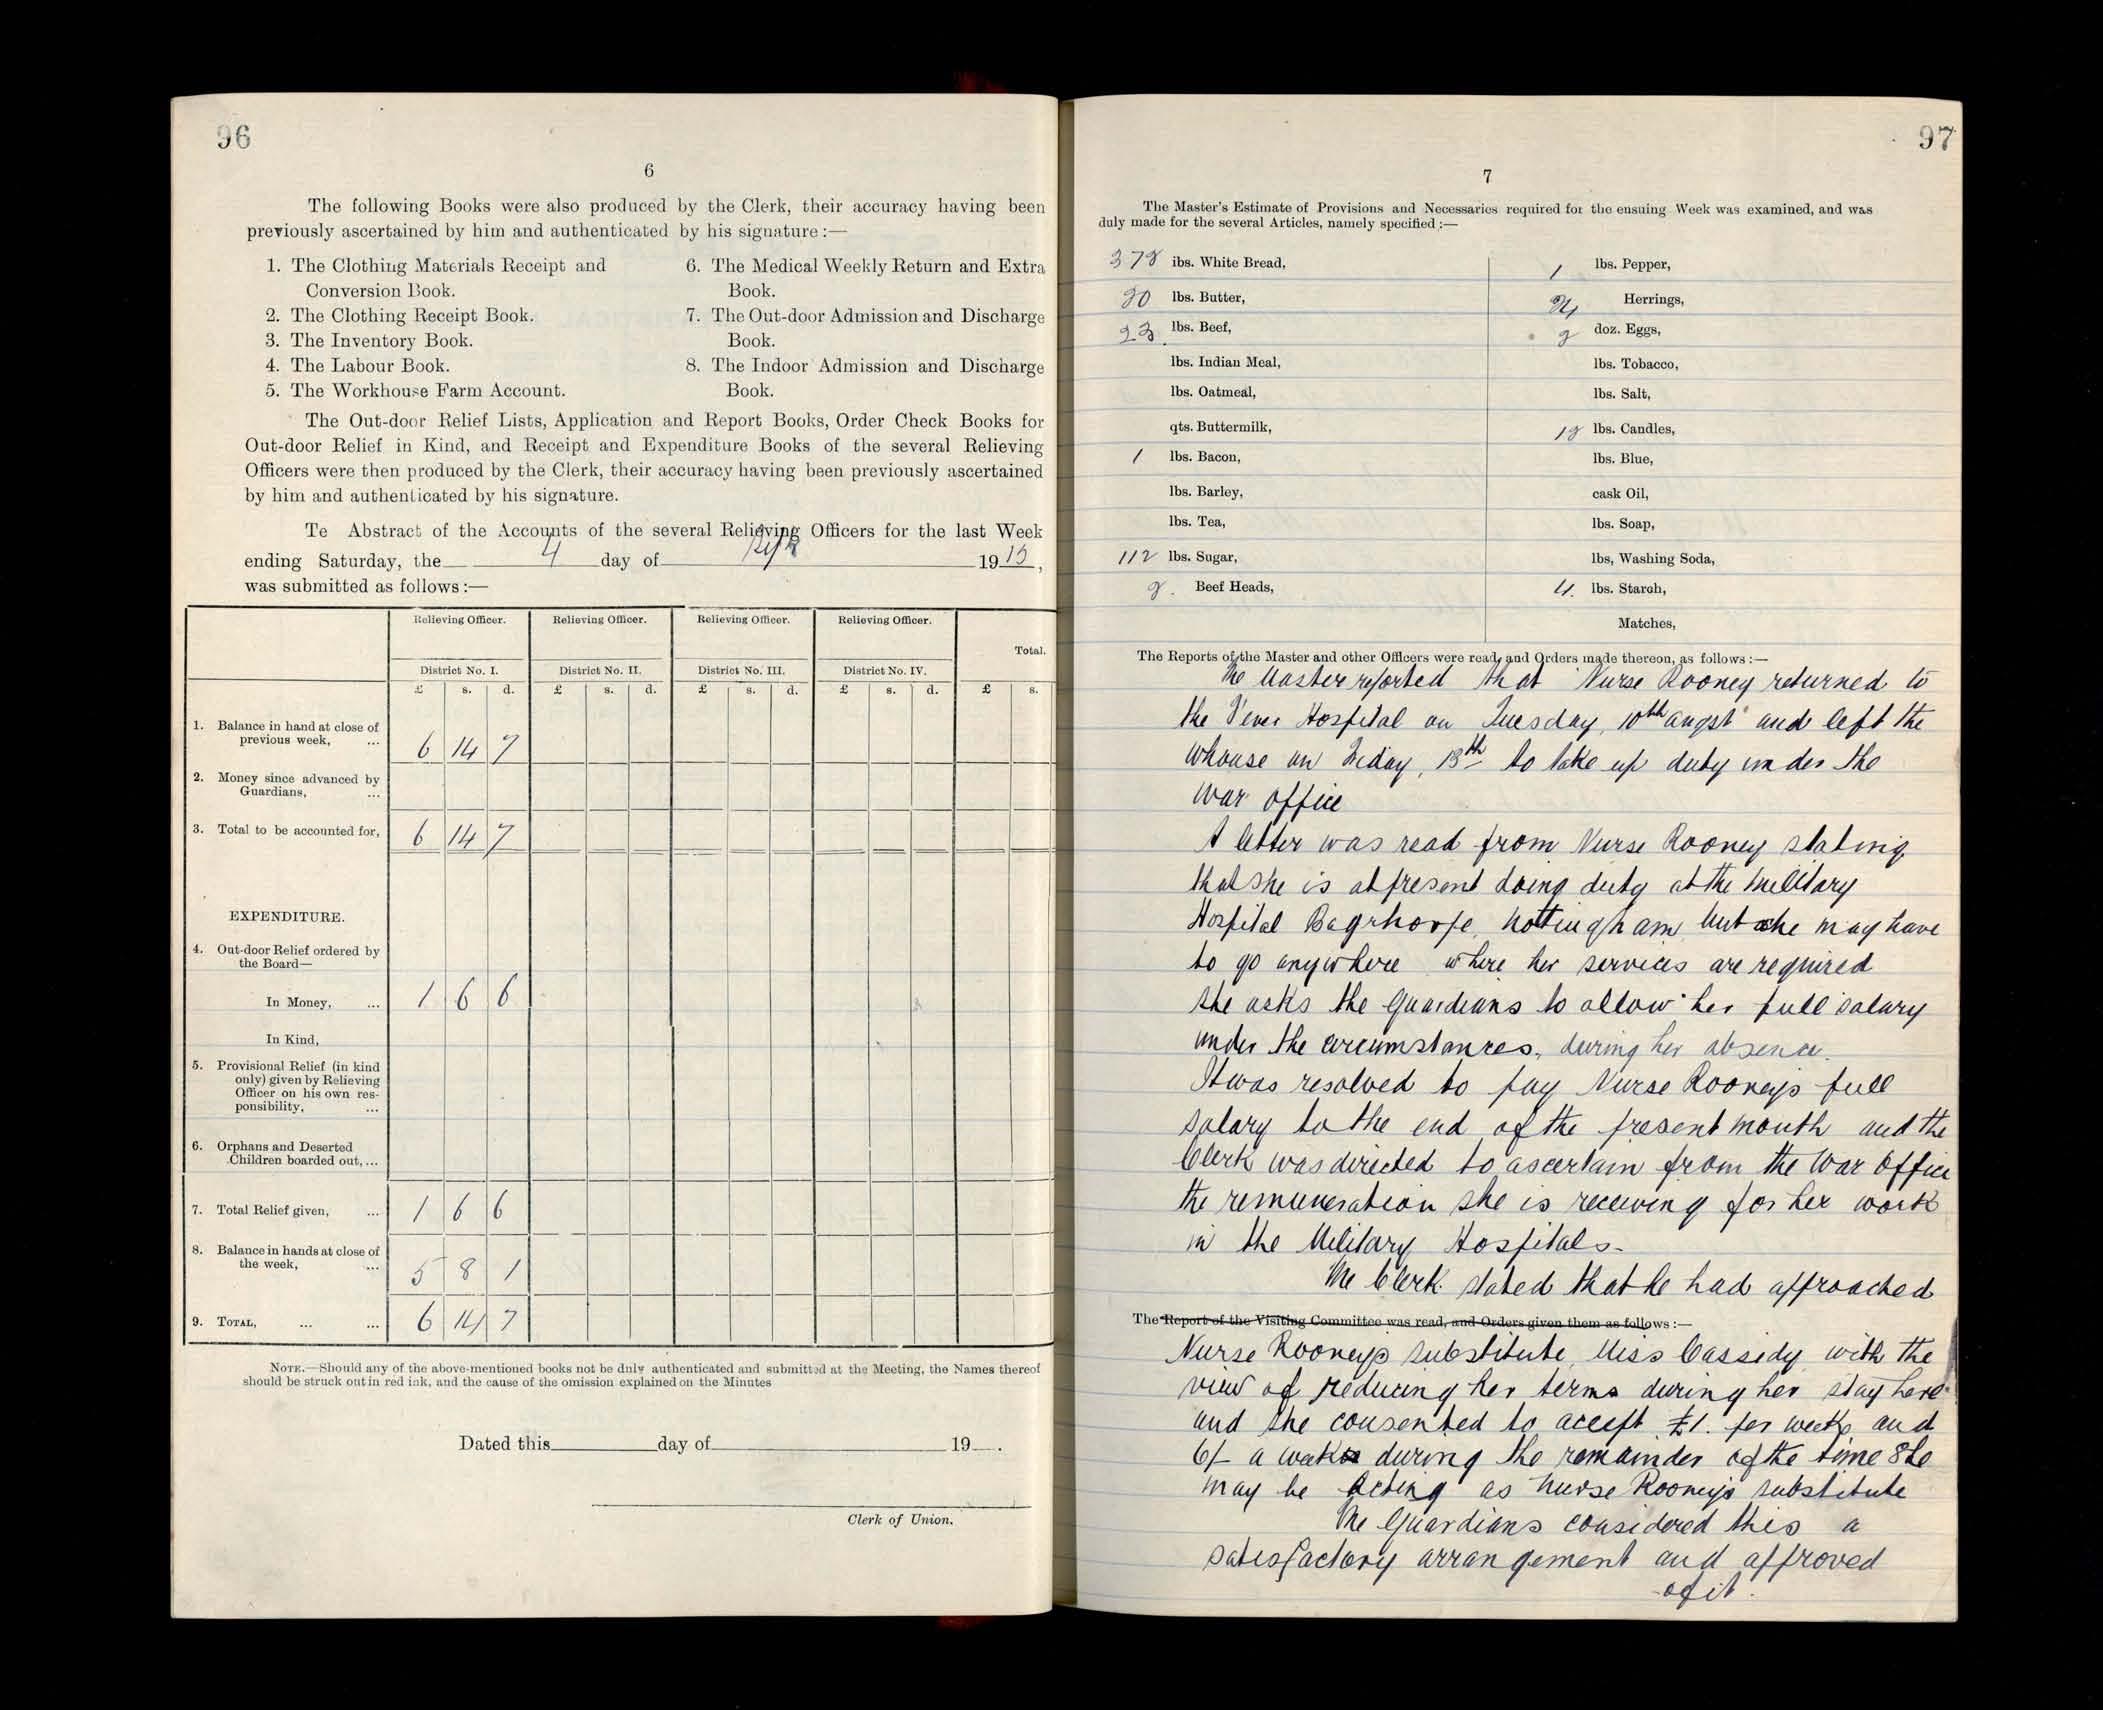 96
6
The following Books were also produced by the Clerk, their accuracy having been
previously ascertained by him and authenticated by his signature :—
1. The Clothing Materials Receipt and
Conversion Book.
2. The Clothing Receipt Book.
3. The Inventory Book.
4. The Labour Book.
5. The Workhouse Farm Account.
6. The Medical Weekly Return and Extra
Book.
7. The Out-door Admission and Discharge
Book.
8. The Indoor Admission and Discharge
Book.
The Out-door Relief Lists, Application and Report Books, Order Check Books for
Out-door Relief in Kind, and Receipt and Expenditure Books of the several Relieving
Officers were then produced by the Clerk, their accuracy having been previously ascertained
by him and authenticated by his signature.
Te Abstract of the Accounts of the several Relieving Officers for the last Week
ending Saturday, the 4 day of Septr 1915,
was submitted as follows :—
Relieving Officer. Relieving Officer. Relieving Officer. Relieving Officer.
Total.
District No. I. District No. II. District No. III. District No. IV.
£ s. d. £ s. d. £ s. d. £ s. d. £ s.
1. Balance in hand at close of
previous week, ... 6 14 7
2. Money since advanced by
Guardians, ...
3. Total to be accounted for, 6 14 7
EXPENDITURE.
4. Out-door Relief ordered by
the Board—
In Money, ... 1 6 6
In Kind,
5. Provisional Relief (in kind
only) given by Relieving
Officer on his own res-
ponsibility, ...
6. Orphans and Deserted
Children boarded out, ...
7. Total Relief given, ... 1 6 6
8. Balance in hands at close of
the week, ... 5 8 1
9. TOTAL, ... ... 6 14 7
NOTE.—Should any of the above-mentioned books not be duly authenticated and submitted at the Meeting, the Names thereof
should be struck out in red ink, and the cause of the omission explained on the Minutes
Dated this day of 19 .
Clerk of Union.
97
7
The Master's Estimate of Provisions and Necessaries required for the ensuing Week was examined, and was
duly made for the several Articles, namely specified :—
378 lbs. White Bread,
20 lbs. Butter,
23 lbs. Beef,
lbs. Indian Meal,
lbs. Oatmeal,
qts. Buttermilk,
1 lbs. Bacon,
lbs. Barley,
lbs. Tea,
112 lbs. Sugar,
2 Beef Heads,
1 lbs. Pepper,
24 Herrings,
2 doz. Eggs,
lbs. Tobacco,
lbs. Salt,
12 lbs. Candles,
lbs. Blue,
cask Oil,
lbs. Soap,
lbs, Washing Soda,
4 lbs. Starch,
Matches,
The Reports of the Master and other Officers were read, and Orders made thereon, as follows :—
The Master reported that Nurse Rooney returned to
the Fever Hospital on Tuesday, 10th angst and left the
Whouse on Friday, 13th to take up duty under the
War office
A letter was read from Nurse Rooney stating
that she is at present doing duty at the Military
Hospital Bagrhorpe, Nottingham but she may have
to go anywhere where her services are required
She asks the Guardians to allow her full salary
under the circumstances, during her absence.
It was resolved to pay Nurse Rooneys full
salary to the end of the present month and the
Clerk was directed to ascertain from the War Office
the remuneration she is receiving for her work
in the Military Hospitals.
The Clerk stated that he had approached
The Report of the Visiting Committee was read, and Orders given them as follows :—
Nurse Rooneys substitute, Miss Cassidy with the
view of reducing her terms during her stay here
and she consented to accept £1. per week and
6/- a week during the remainder of the time She
may be Acting as Nurse Rooneys substitute
The Guardians considered this a
satisfactory arrangement and approved
of it.